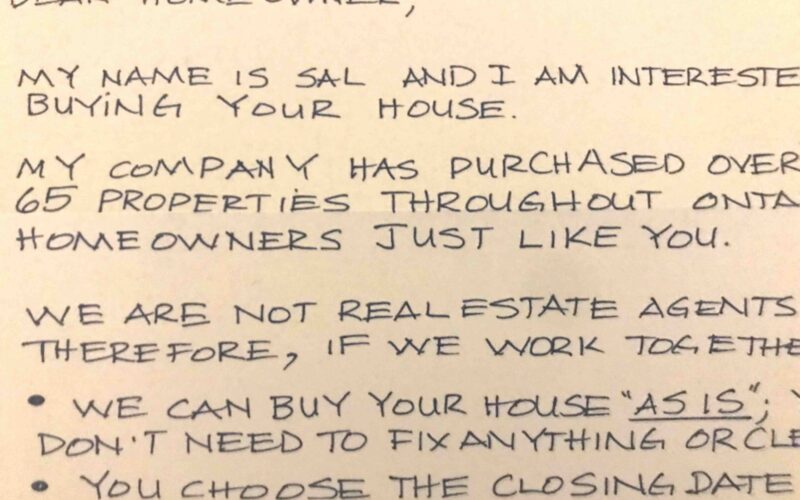 DEAR HOMEOWNER,
MY NAME IS SAL AND I AM INTERESTE
BUYING YOUR HOUSE.
MY COMPANY HAS PURCHASED OVER
65 PROPERTIES THROUGHOUT ONTA
HOMEOWNERS JUST LIKE YOU.
WE ARE NOT REAL ESTATE AGENTS
THEREFORE, IF WE WORK TOGETHE
• WE CAN BUY YOUR HOUSE "AS IS"; Y
DON'T NEED TO FIX ANYTHING OR CLE
• YOU CHOOSE THE CLOSING DATE